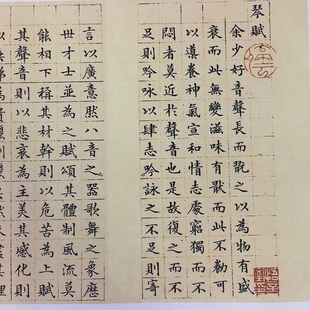 琴賦
余少好音聲長而翫之以為物有盛
衰而此無變滋味有猒而此不勌可
以導養神氣宣和情志處窮獨而不
悶者莫近於聲音也是故復之而不
足則吟詠以肆志吟詠之不足則寄
言以廣意然八音之器歌舞之象歷
世才士並為之賦頌其體制風流莫
能相下極其材幹則以危苦為上賦
其聲音則以悲哀為主美其感化則